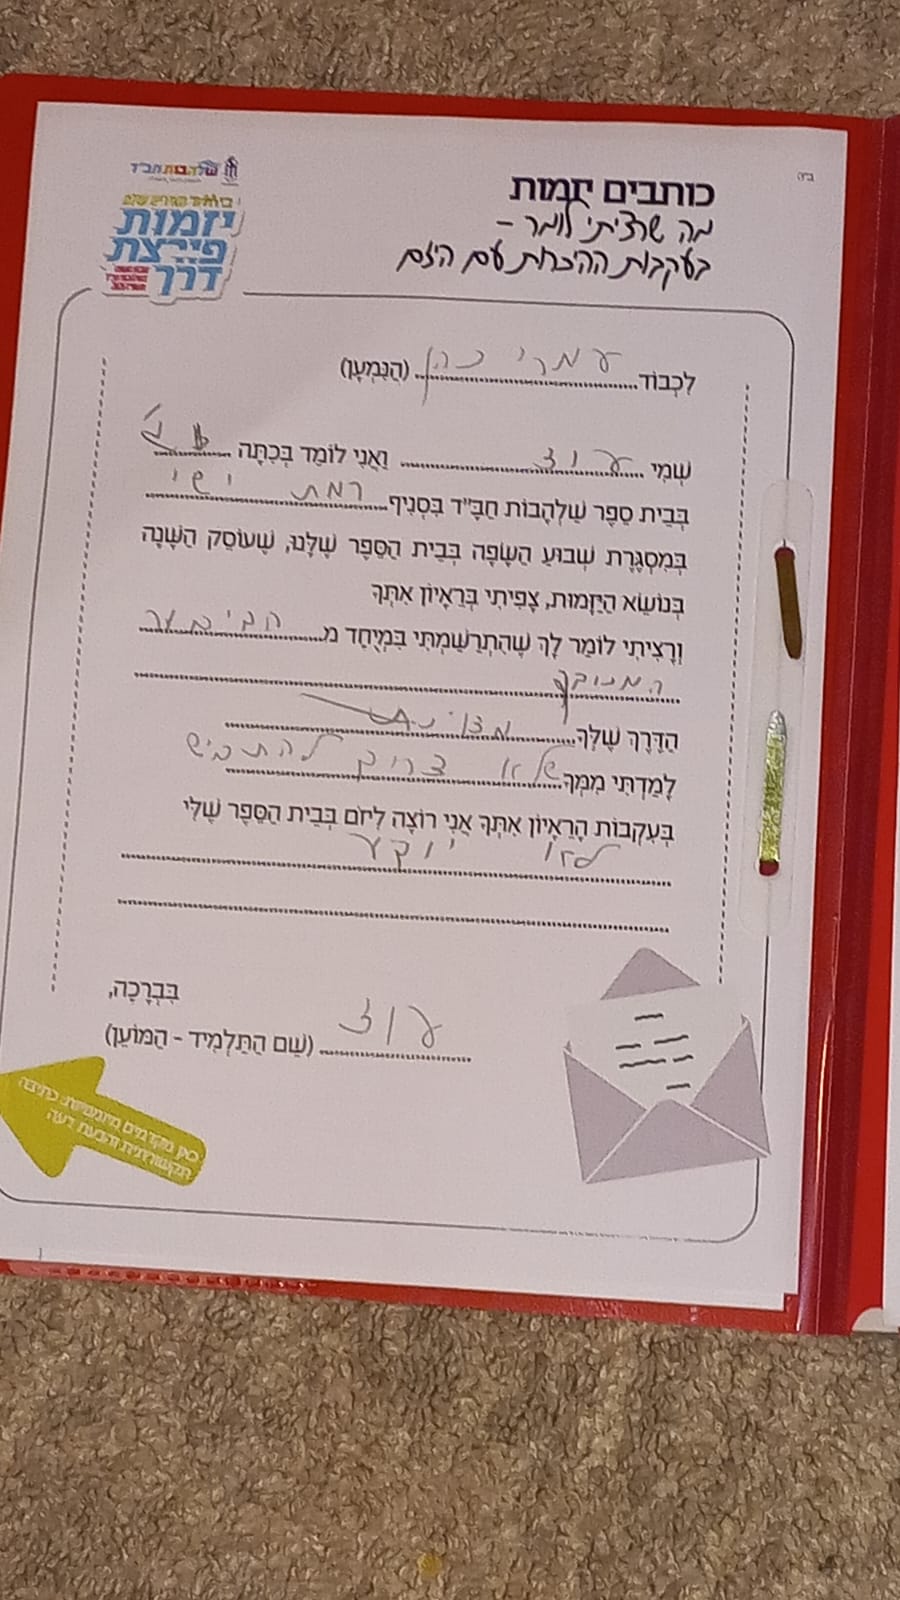 ב"ה
שלהבות חב"ד
יזמות
פורצת
דרך
כותבים יזמות
מה שרציתי לומר -
בעקבות ההיכרות עם היזם
לִכְבוֹד עמרי כהן (הַנִּמְעָן)
שְׁמִי עוז וַאֲנִי לוֹמֵד בְּכִתָּה
בְּבֵית סֵפֶר שַׁלְהָבוֹת חַבָּ"ד בִּסְנִיף רמת ישי
בְּמִסְגֶּרֶת שְׁבוּעַ הַשָּׂפָה בְּבֵית הַסֵּפֶר שֶׁלָּנוּ, שֶׁעוֹסֵק הַשָּׁנָה
בְּנוֹשֵׂא הַיַּזָּמוּת, צָפִיתִי בְּרֵאָיוֹן אִתְּךָ
וְרָצִיתִי לוֹמַר לְךָ שֶׁהִתְרַשַּׁמְתִּי בִּמְיֻחָד מ
הַדֶּרֶךְ שֶׁלְּךָ
לָמַדְתִּי מִמְּךָ שלא צריך להתבייש
בְּעִקְבוֹת הָרֵאָיוֹן אִתְּךָ אֲנִי רוֹצֶה לִיזֹם בְּבֵית הַסֵּפֶר שֶׁלִּי
בִּבְרָכָה,
עוז (שֵׁם הַתַּלְמִיד - הַמּוֹעֵן)
כאן מקדמים מיומנויות: כתיבה
תקשורתית והבעת דעה